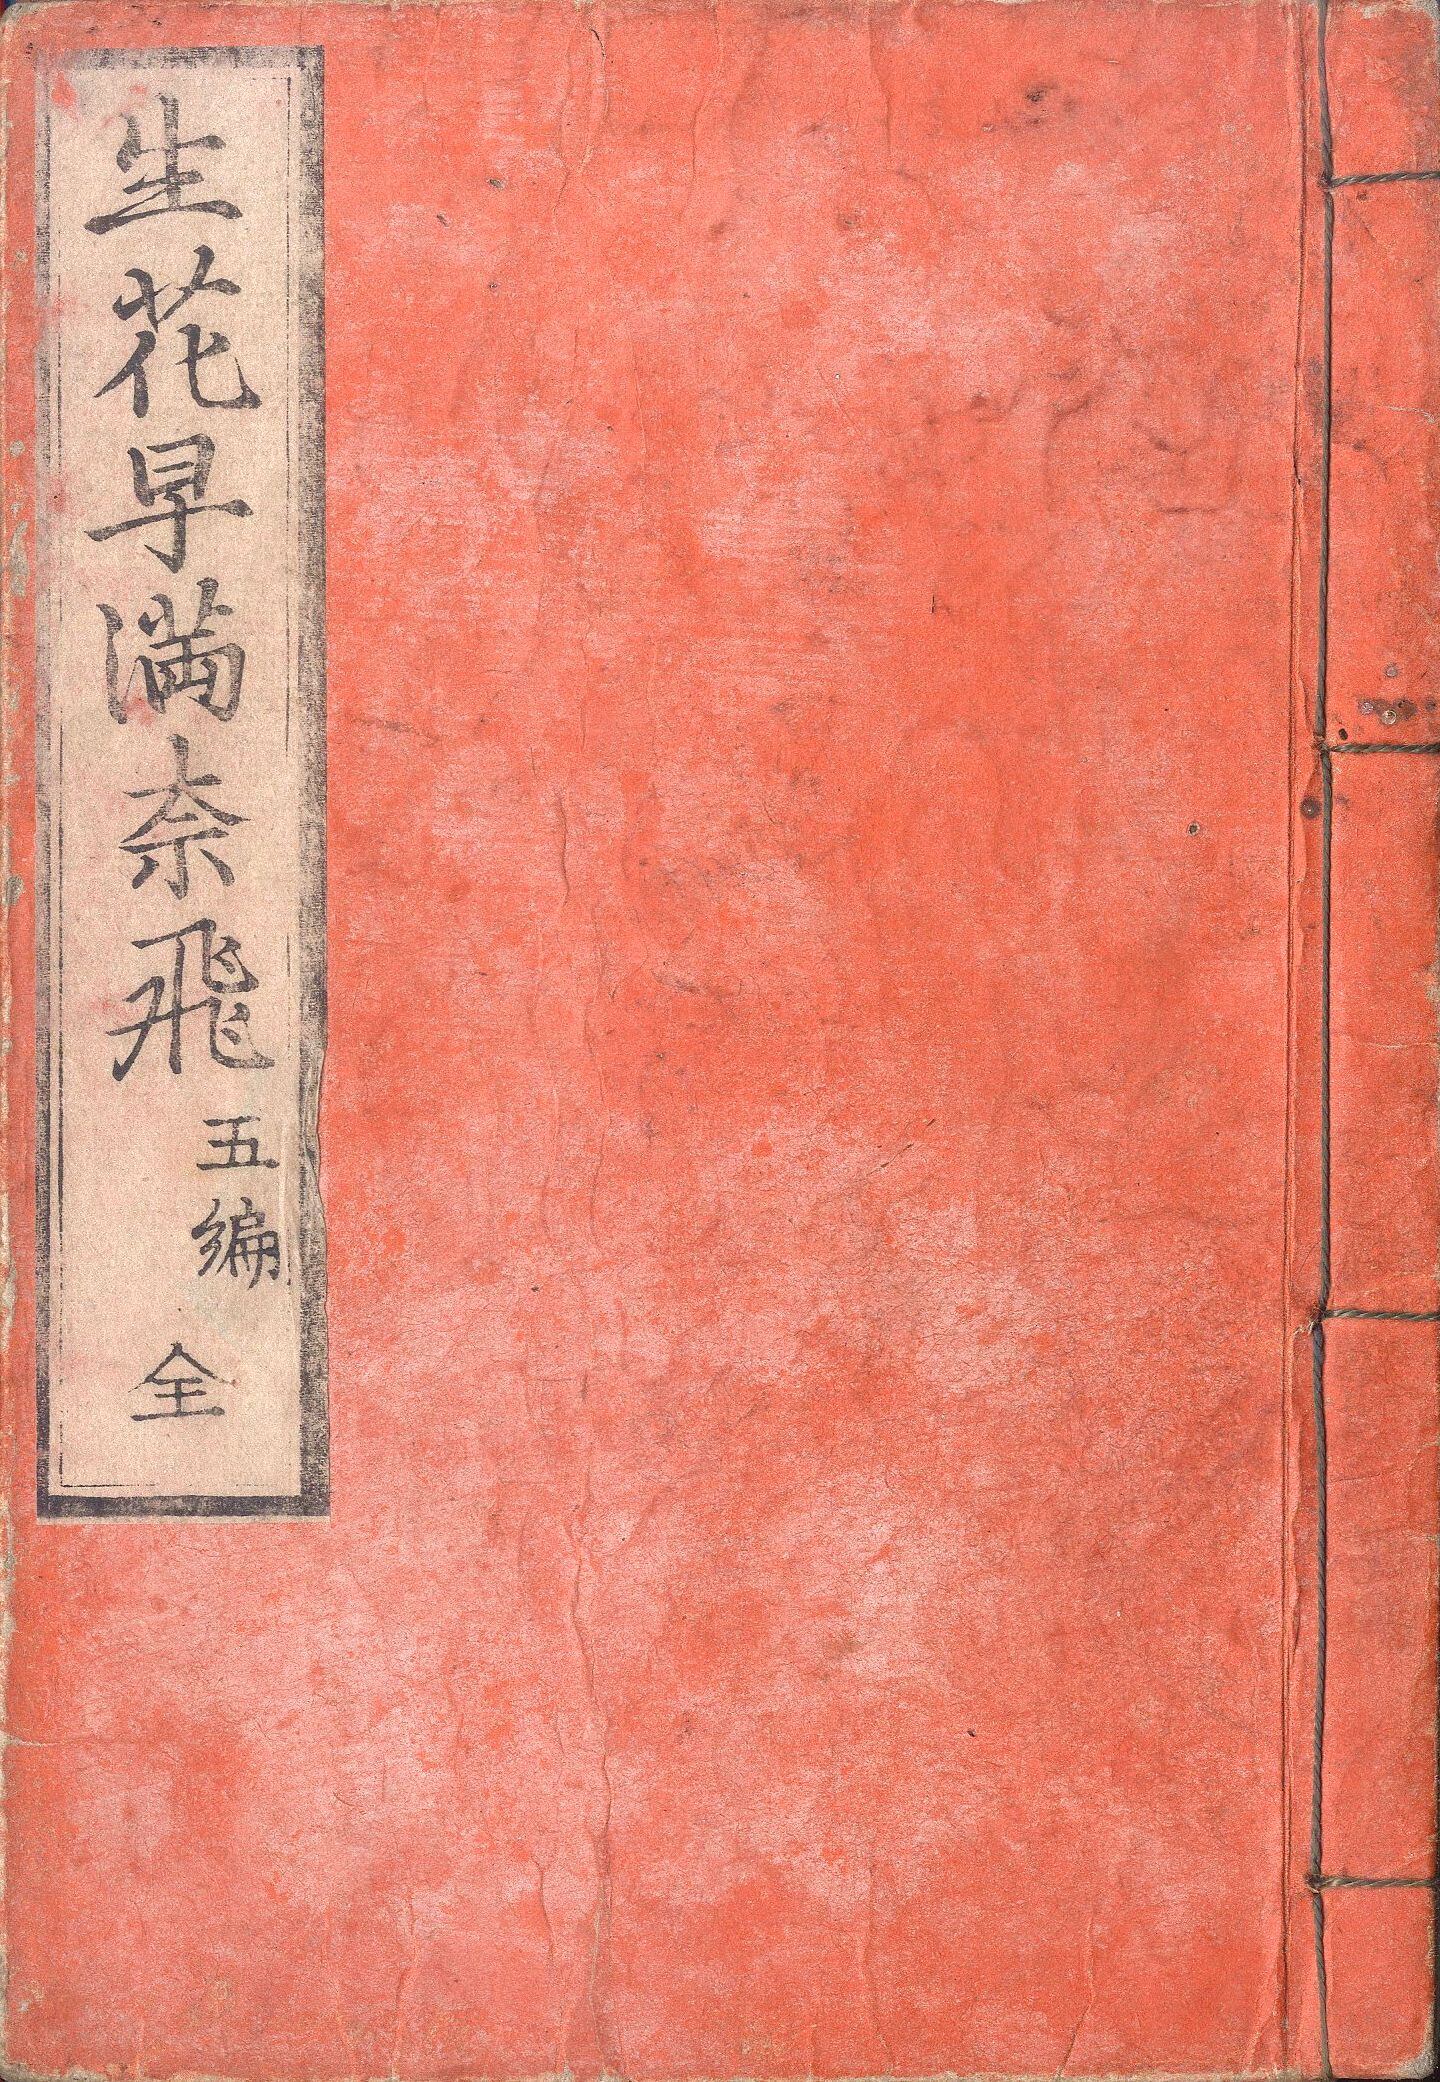 生花早満奈飛
五編
全